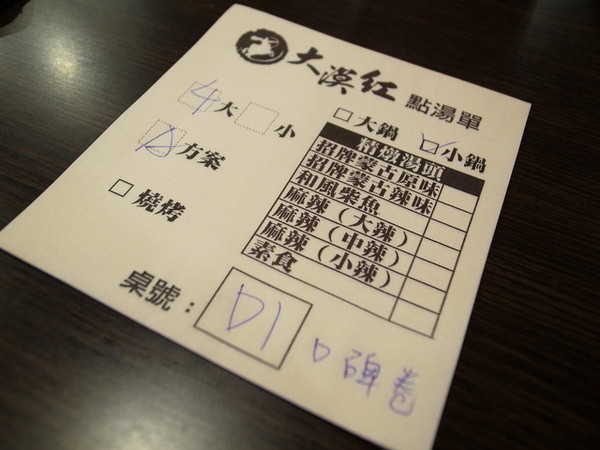 大漠紅 點湯單
4大 小
A方案
燒烤
大鍋 小鍋
精燉湯頭
招牌蒙古原味
招牌蒙古辣味
和風柴魚
麻辣（大辣）
麻辣（中辣）
麻辣（小辣）
素食
桌號：D1
口碑卷